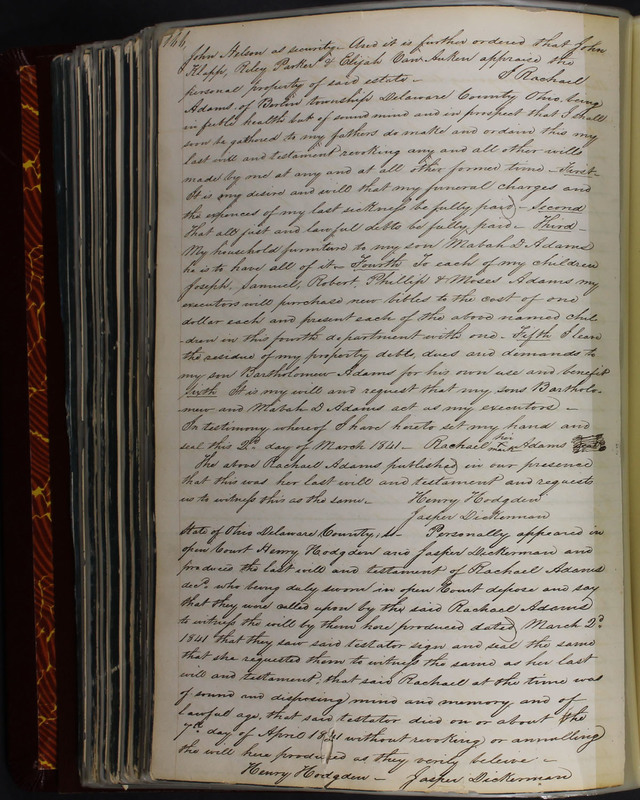 166
John Nelson as security. And it is further ordered that John
Klapp, Riley Parker & Elijah Van Auken appraise the
personal property of said estate — I Rachael
Adams, of Berlin township Delaware County Ohio, being
in feeble health but of sound mind and in prospect that I shall
soon be gathered to my fathers do make and ordain this my
last will and testament revoking any and all other wills
made by me at any and at all other former time — First
It is my desire and will that my funeral charges and
the expences of my last sickness be fully paid — Second
That all just and lawful debts be fully paid — Third
My household furniture to my son Mabah D Adams
he is to have all of it — Fourth To each of my children
Joseph, Samuel, Robert, Phillip & Moses Adams my
executors will purchase new bibles to the cost of one
dollar each and present each of the above named chil-
-dren in this fourth department with one — Fifth I leave
the residue of my property, debts, dues and demands to
my son Bartholomew Adams for his own use and benefit
Sixth It is my will and request that my sons Bartholo-
mew and Mabah D Adams act as my executors —
In testimony whereof I have hereto set my hand and
seal this 2d. day of March 1841 — Rachael her X mark Adams seal
The above Rachael Adams published in our presence
that this was her last will and testament and requests
us to witness this as the same — Henry Hodgden
Jasper Dickerman
State of Ohio Delaware County, ss — Personally appeared in
open Court Henry Hodgden and Jasper Dickerman and
produced the last will and testament of Rachael Adams
decd. who being duly sworn in open Court depose and say
that they were called upon by the said Rachael Adams
to witness the will by them here produced dated March 2d.
1841 that they saw said testator sign and seal the same
that she requested them to witness the same as her last
will and testament, that said Rachael at the time was
of sound and disposing mind and memory, and of
lawful age, that said testator died on or about the
7th day of April 1841 without revoking or annulling
the will here produced as they verily beleive —
Henry Hodgden — Jasper Dickerman